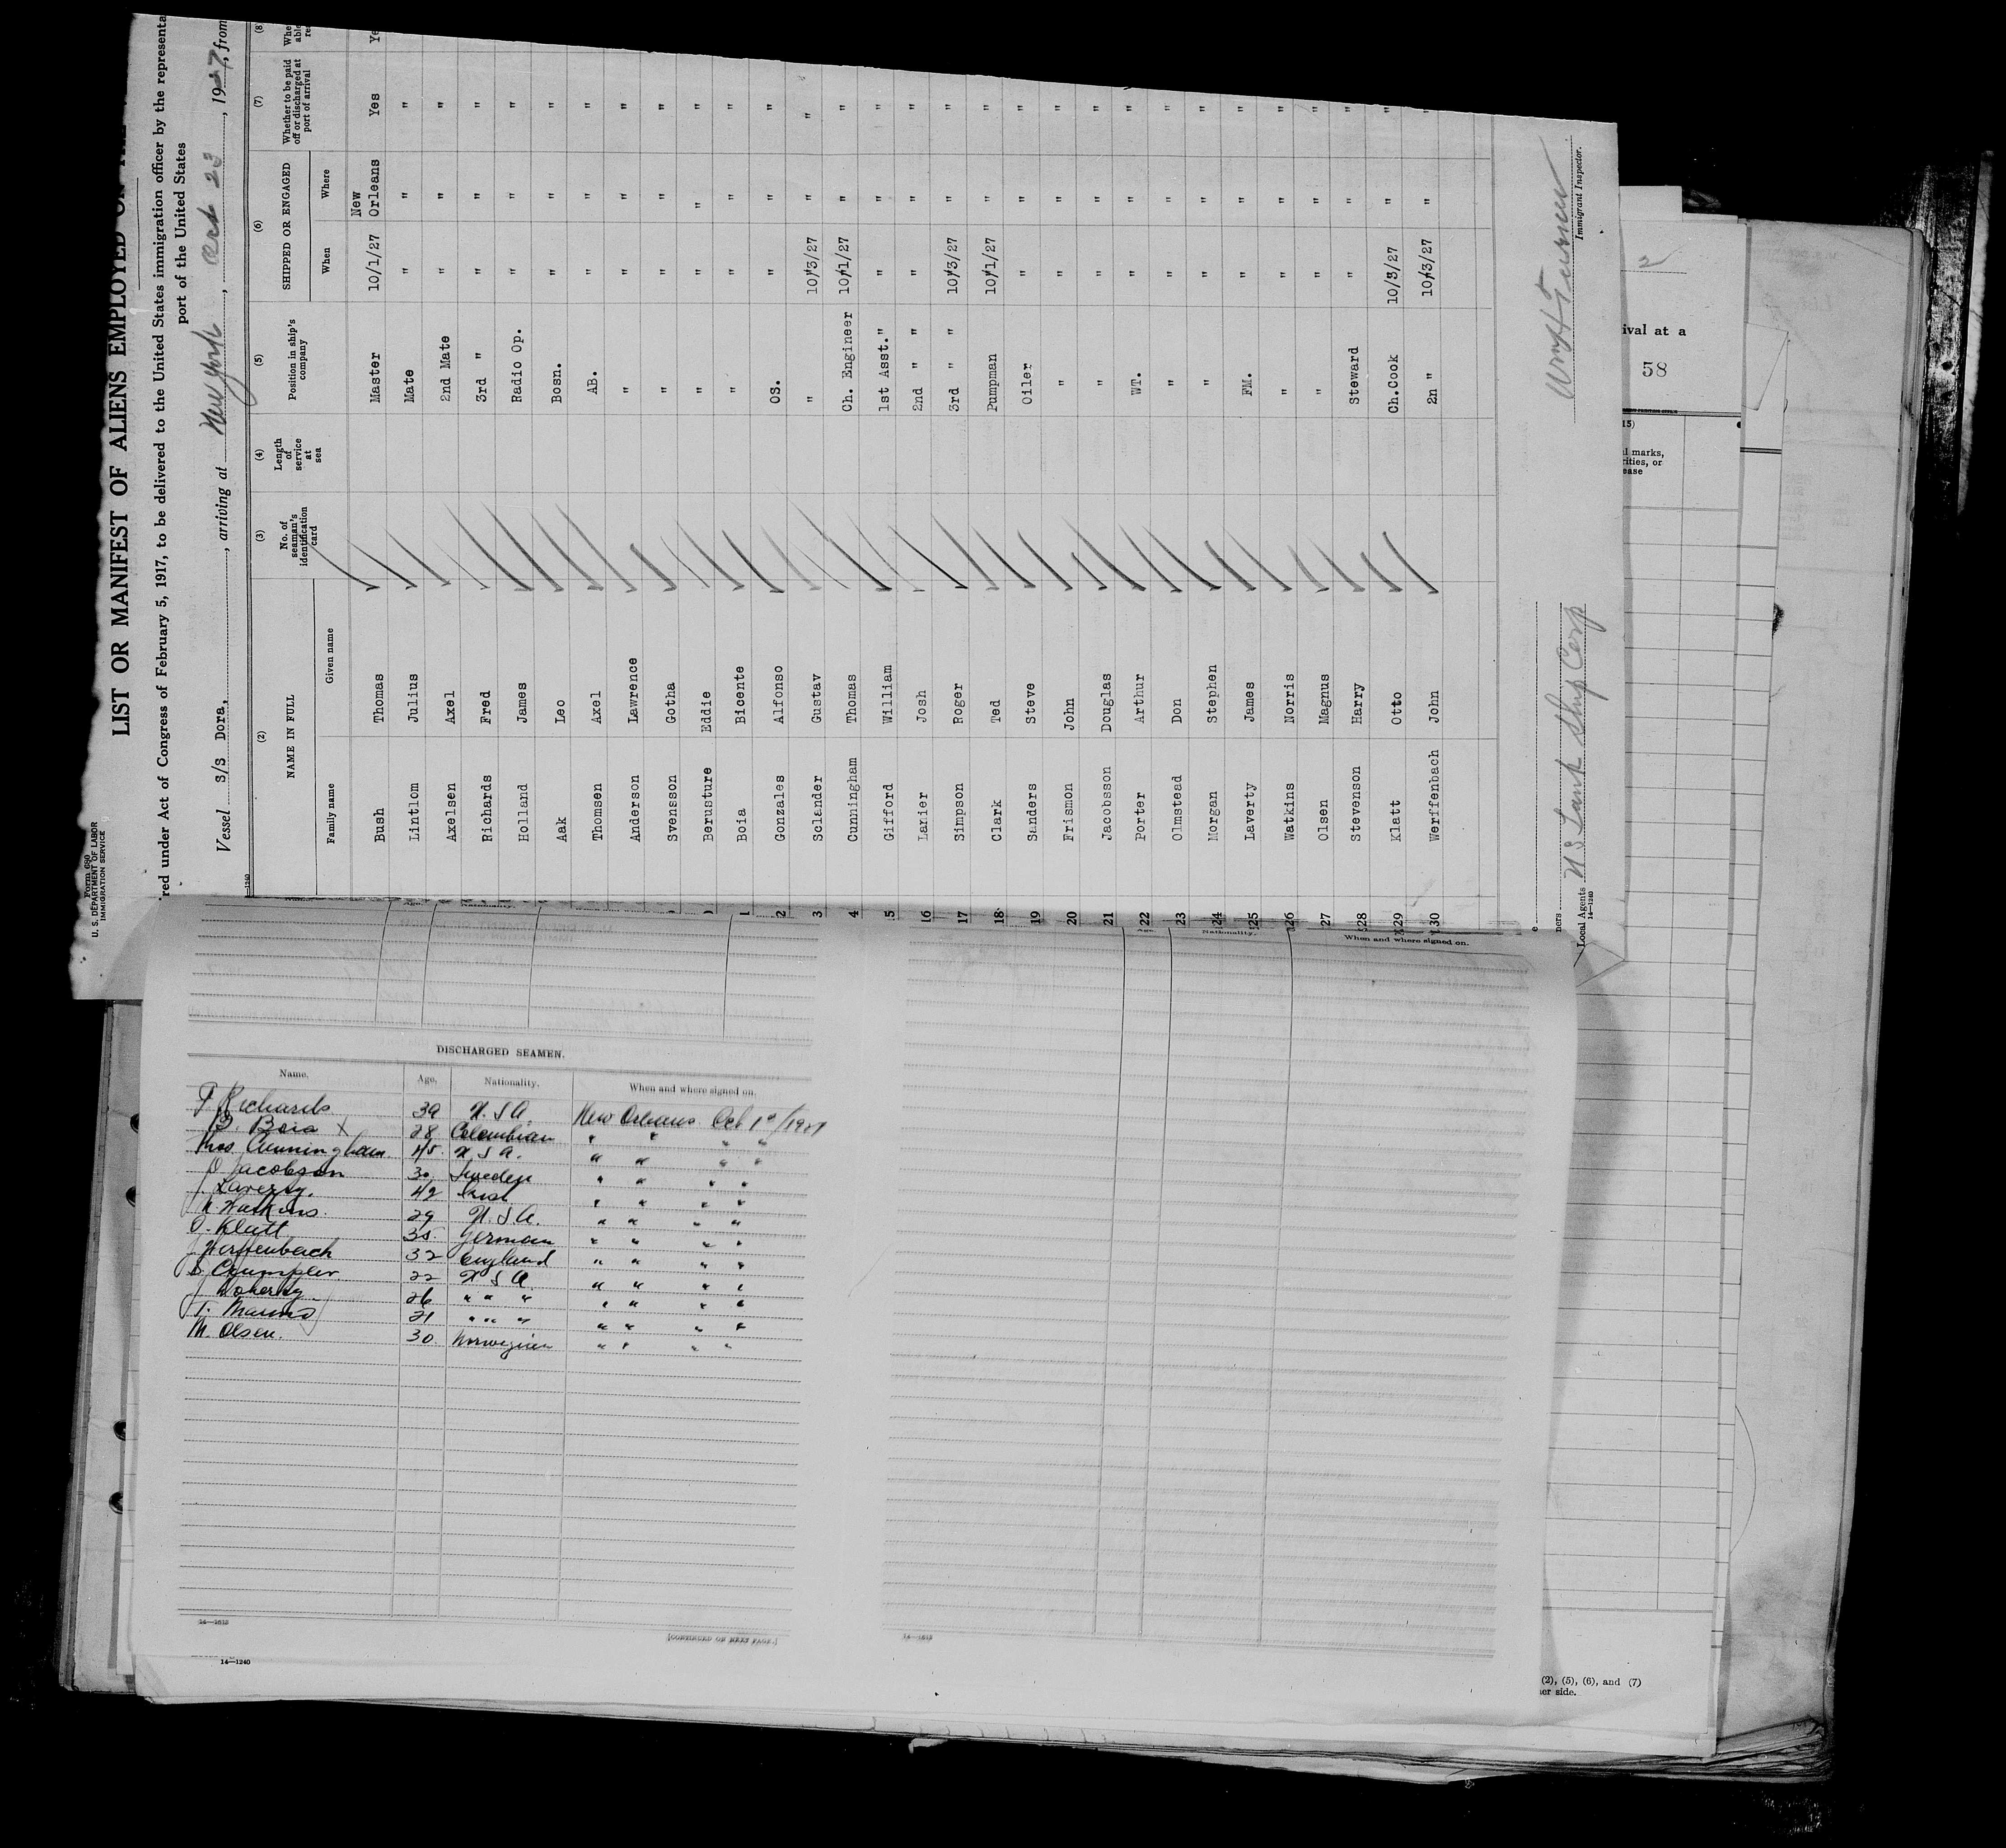 Form 680
U. S. DEPARTMENT OF LABOR
IMMIGRATION SERVICE
LIST OR MANIFEST OF ALIENS EMPLOYED ON THE
red under Act of Congress of February 5, 1917, to be delivered to the United States immigration officer by the representa
port of the United States
Vessel S/S Dora, , arriving at New York , Oct 23 , 1927, from
14—1240
(2) (3) (4) (5) (6) (7) (8)
NAME IN FULL No. of seaman's identification card Length of service at sea Position in ship's company SHIPPED OR ENGAGED Whether to be paid off or discharged at port of arrival
Family name Given name When Where
Bush Thomas Master 10/1/27 New Orleans Yes Ye
Lintlom Julius Mate " " "
Axelsen Axel 2nd Mate " " "
Richards Fred 3rd " " " "
Holland James Radio Op. " " "
Aak Leo Bosn. " " "
Thomsen Axel AB. " " "
Anderson Lawrence " " " "
Svensson Gotha " " " "
Berusture Eddie " " " "
1 Boia Bicente " " " "
2 Gonzales Alfonso OS. " " "
3 Sclander Gustav " 10/3/27 " "
4 Cunningham Thomas Ch. Engineer 10/1/27 " "
5 Gifford William 1st Asst." " " "
16 Larier Josh 2nd " " " " "
17 Simpson Roger 3rd " " 10/3/27 " "
18 Clark Ted Pumpman 10/1/27 " "
19 Sanders Steve Oiler " " "
20 Frismon John " " " "
21 Jacobsson Douglas " " " "
22 Porter Arthur WT. " " "
23 Olmstead Don " " " "
24 Morgan Stephen " " " "
25 Laverty James FM. " " "
26 Watkins Norris " " " "
27 Olsen Magnus " " " "
28 Stevenson Harry Steward " " "
29 Klatt Otto Ch.Cook 10/3/27 " "
30 Werffenbach John 2n " 10/3/27 " "
ners
Local Agents U S Tank Ship Corp
14—1240
Immigrant Inspector.
2
ival at a
58
15)
l marks,
rities, or
ease
Age. Nationality. When and where signed on.
DISCHARGED SEAMEN.
Name. Age. Nationality. When and where signed on.
F Richards 39 U.S.A. New Orleans Oct 1st/1927
B. Boia X 28 Colombian " " " "
Thos Cunningham 45 U.S.A. " " " "
D Jacobson 30 Sweden " " " "
J. Laverty. 42 Irish " " " "
N Watkins. 29 U.S.A. " " " "
O. Klatt 35. German " " " "
J Werffenbach 32 England " " " "
S. Crumpler 22 U S A " " " "
J Doherty 26 " " " " " " "
T. 21 " " " " " " "
M. Olsen. 30. Norwegian " " " "
14—1613
[CONTINUED ON NEXT PAGE.]
14—1613
14—1240
(2), (5), (6), and (7)
er side.